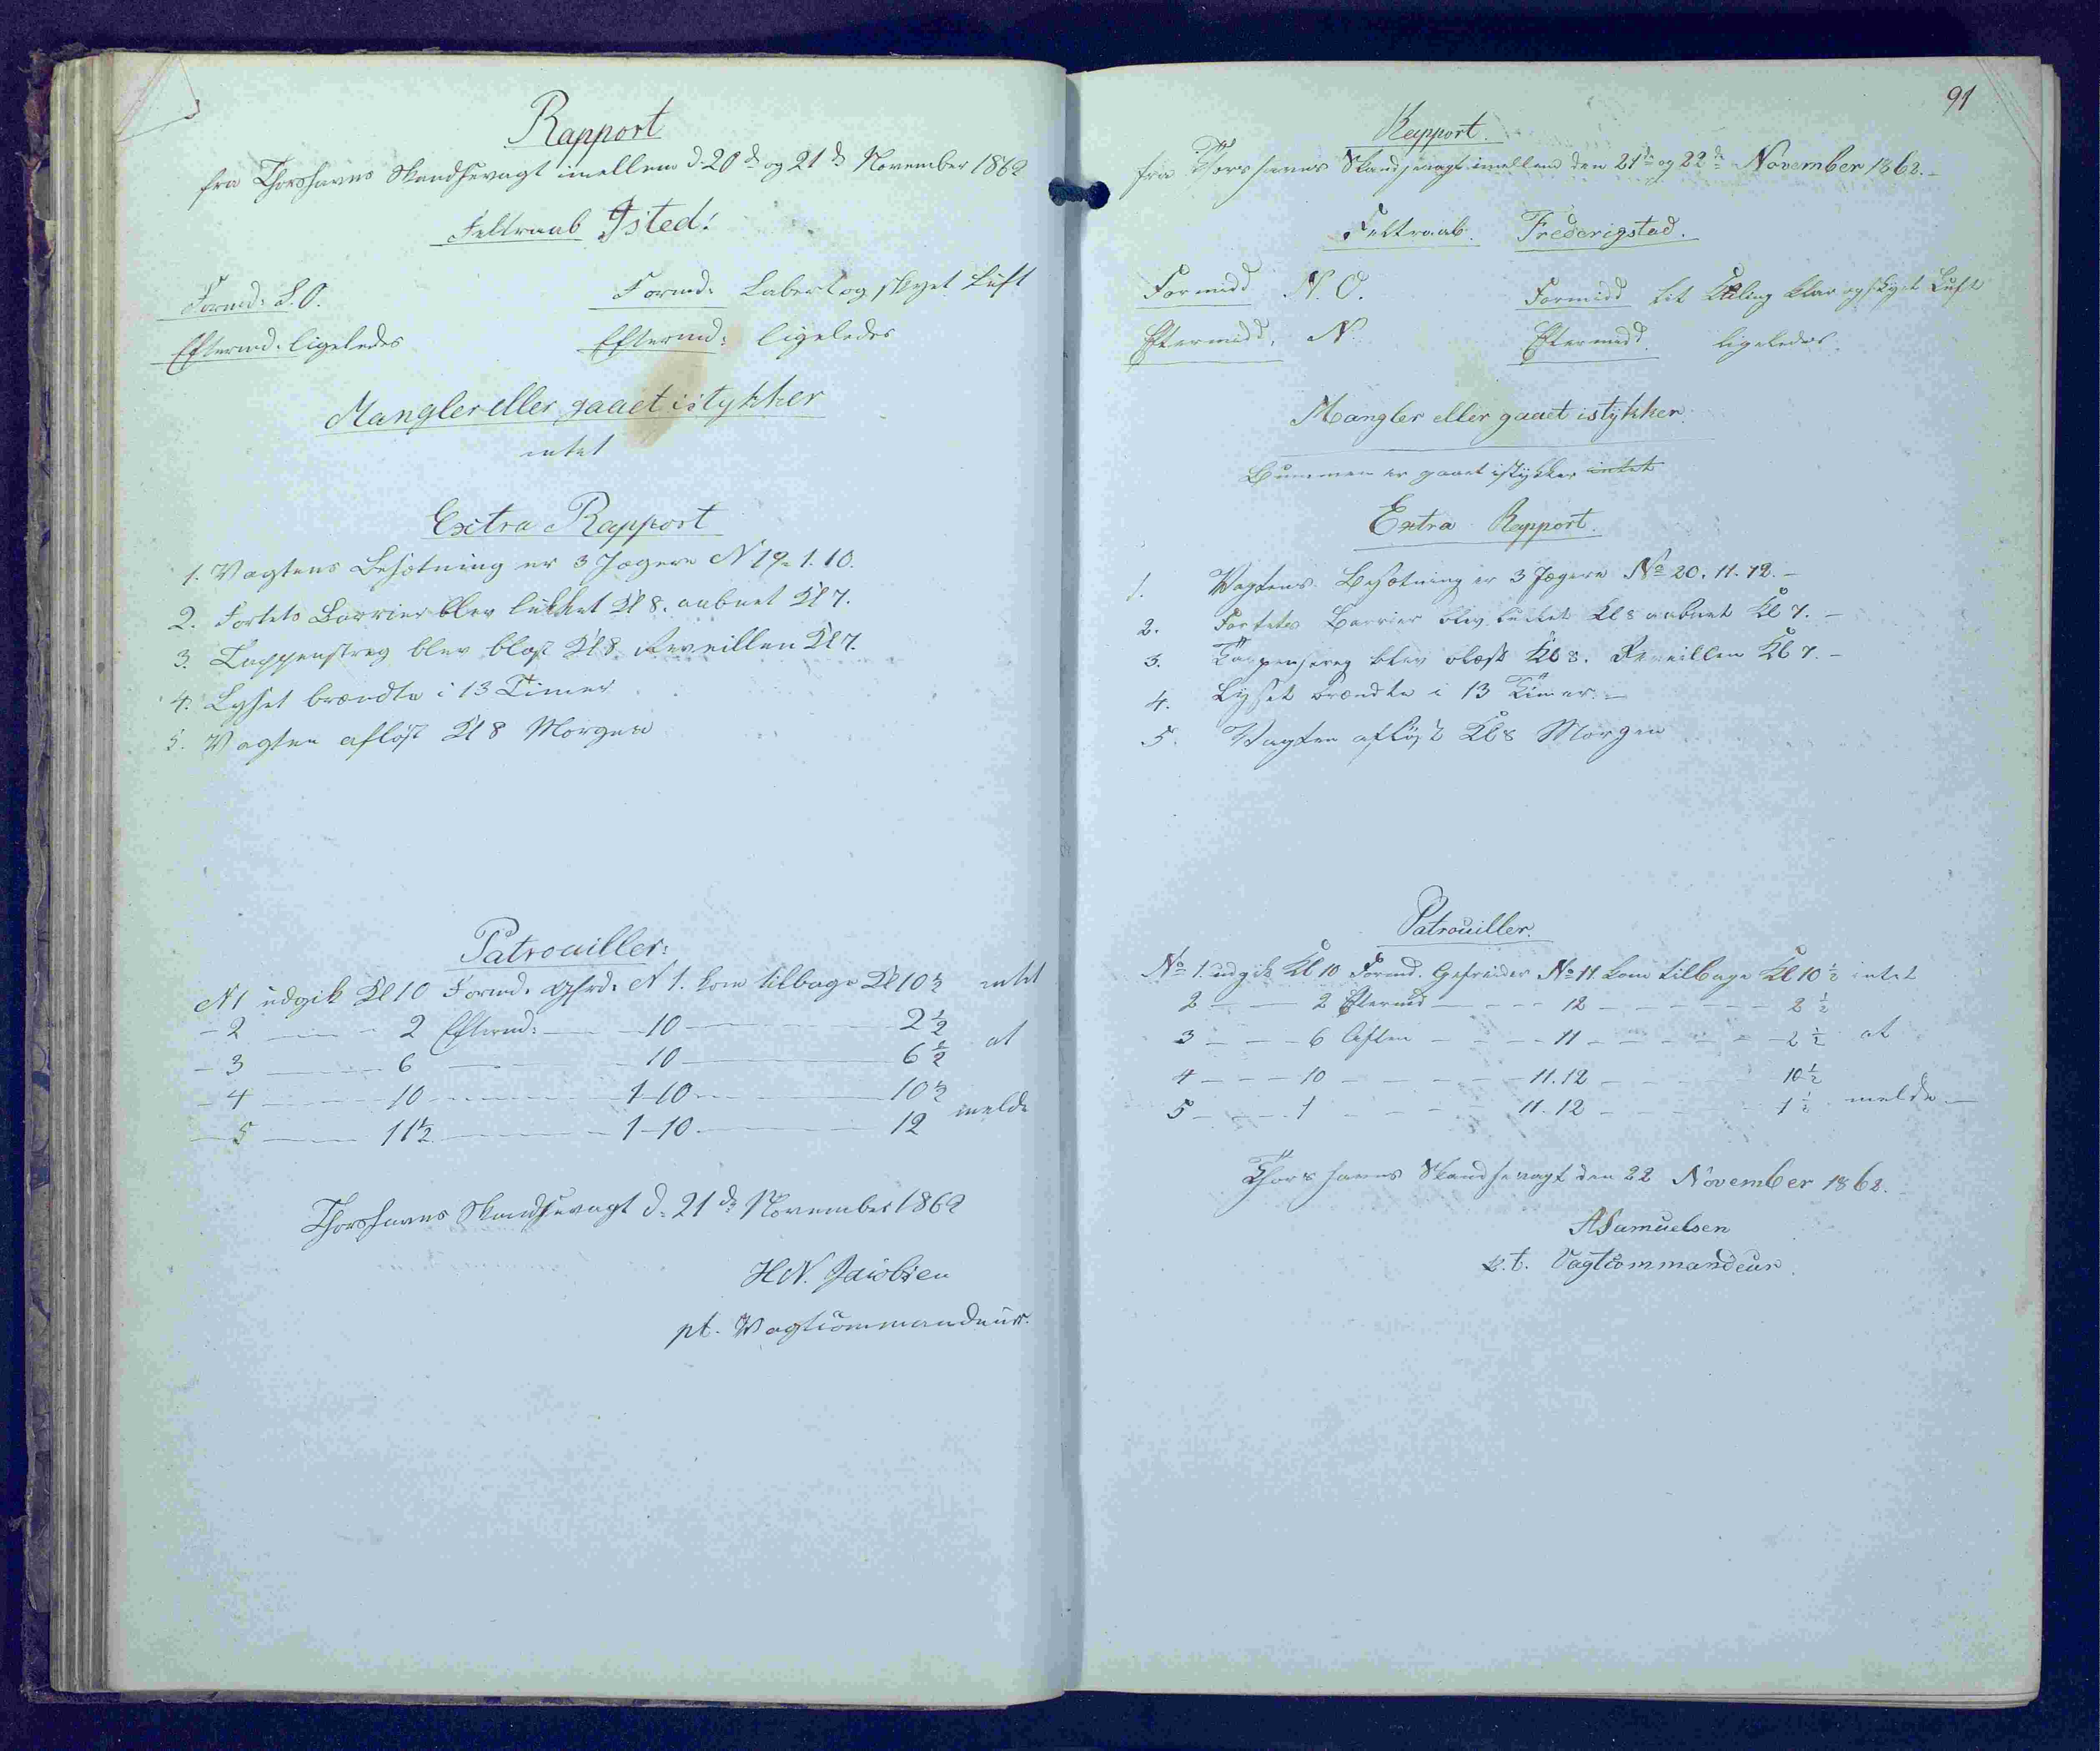 Rapport
fra Thorshavns Skandsevagt imellem d. 20de og 21de November 1862
Feltraab Isted!
Formd: S.O. Formd: Laber og skyet Luft
Eftermd. ligeledes Eftermd: ligeledes
Mangler eller gaaet istykker
intet
Extra Rapport
1. Vagtens Besætning er 3 Jægere N 19. 1. 10.
2. Fortets Barrier blev lukket Kl 8. aabnet Kl 7.
3. Tappenstreg blev blæst Kl 8. Reveillen Kl 7.
4. Lyset brændte i 13 Timer
5. Vagten afløst Kl 8 Morgen
Patrouiller:
N 1 udgik Kl 10 Formd. Gfrd. N 1. kom tilbage Kl 10½ intet
- 2 — - 2 Eftermd: — - 10 — 2½
- 3 — 6 — - 10 — 6½ at
- 4 — 10 — 1-10 — 10½
- 5 — 11½ — 1-10 — 12 melde
Thorshavns Skandsevagt d. 21de November 1862
H.N. Jacobsen
pt. Vagtcommandeur.
91
Rapport.
fra Thorshavns Skandsevagt imellem den 21de og 22de November 1862.
Feltraab. Frederigstad.
Formidd N.O. Formidd lit Kuling klar og skyet Luft
Eftermidd. N. Eftermidd. ligeledes.
Mangler eller gaaet istykker.
Bummen er gaaet istykker intet
Extra Rapport.
1. Vagtens Besætning er 3 Jægere No 20. 11. 12. -
2. Fortets Barrier blev lukket Kl 8 aabnet Kl 7. -
3. Tappenstreg blev blæst Kl 8. Reveillen Kl 7. -
4. Lyset brændte i 13 Timer. -
5. Vagten afløst Kl 8 Morgen
Patrouiller.
No 1. udgik Kl 10 Formd. Gefreider No 11 kom tilbage Kl 10½ intet
2 - — 2 Eftermd — - - - 12 - - - - - - 2½
3 - - - 6 Aften - - - - 11 - - - - - - 2½ at
4 - - - 10 - - - - - 11.12 - - 10½
5 - - - 1 - - - - 11.12 - - - 1½ melde. -
Thorshavns Skandsevagt den 22 November 1862.
A Samuelsen
p.t. Vagtcommandeur.